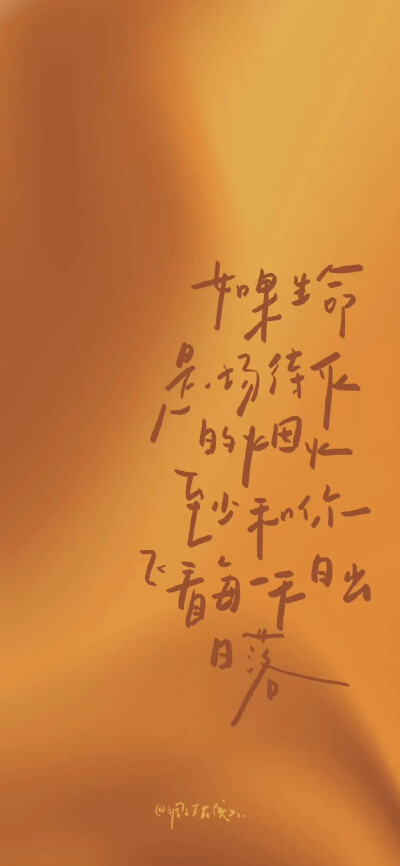 如果生命
是场待灭
的烟火
至少和你一
看每一日出
日落